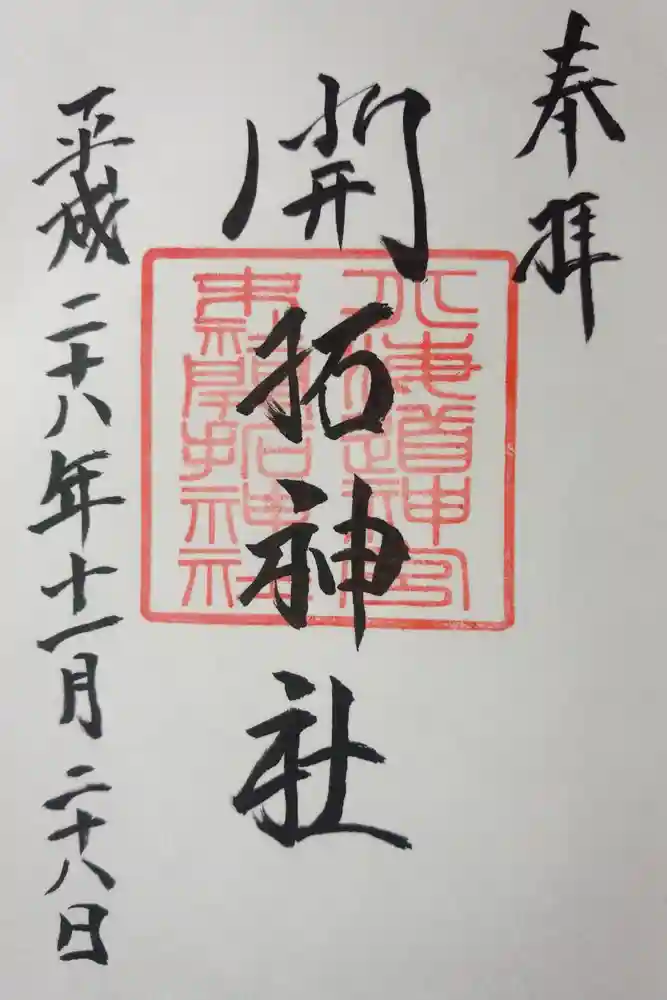 奉拝
開拓神社
北海道神宮
末社開拓神社
平成二十八年十一月二十八日